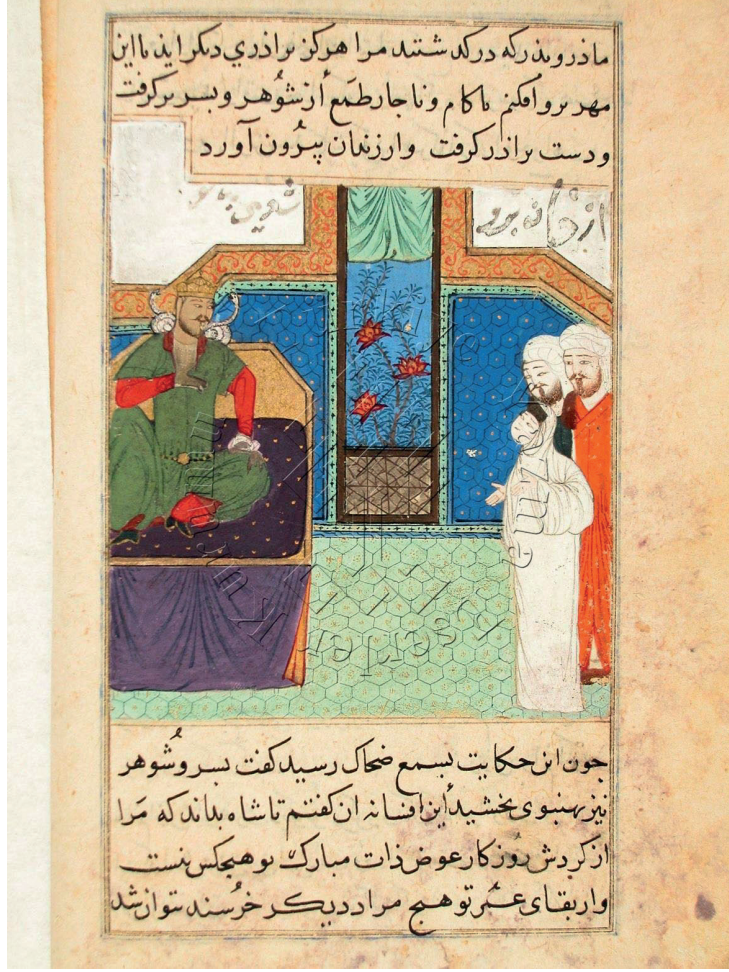 ماذر و بذر که در کذشتند مرا هرکز براذری دیکر اید با این
مهر برو افکنم ناکام و ناجار طَمع از شوُهر و بسر بر کرفت
و دست براذر کرفت و از زندان بیرُون آورد
از خانه برو
جون این حکایت بسمع ضحاک رسید کفت بسر و شُوهر
نیز بهنبوی بخشید این افسانه ان کفتم تا شاه بداند که مَرا
از کردش رُوزکار عوض ذات مبارک تو هیجکس نیست
و از بقای عُمر تو هیج مراد دیکر خرُسند نتوان شد